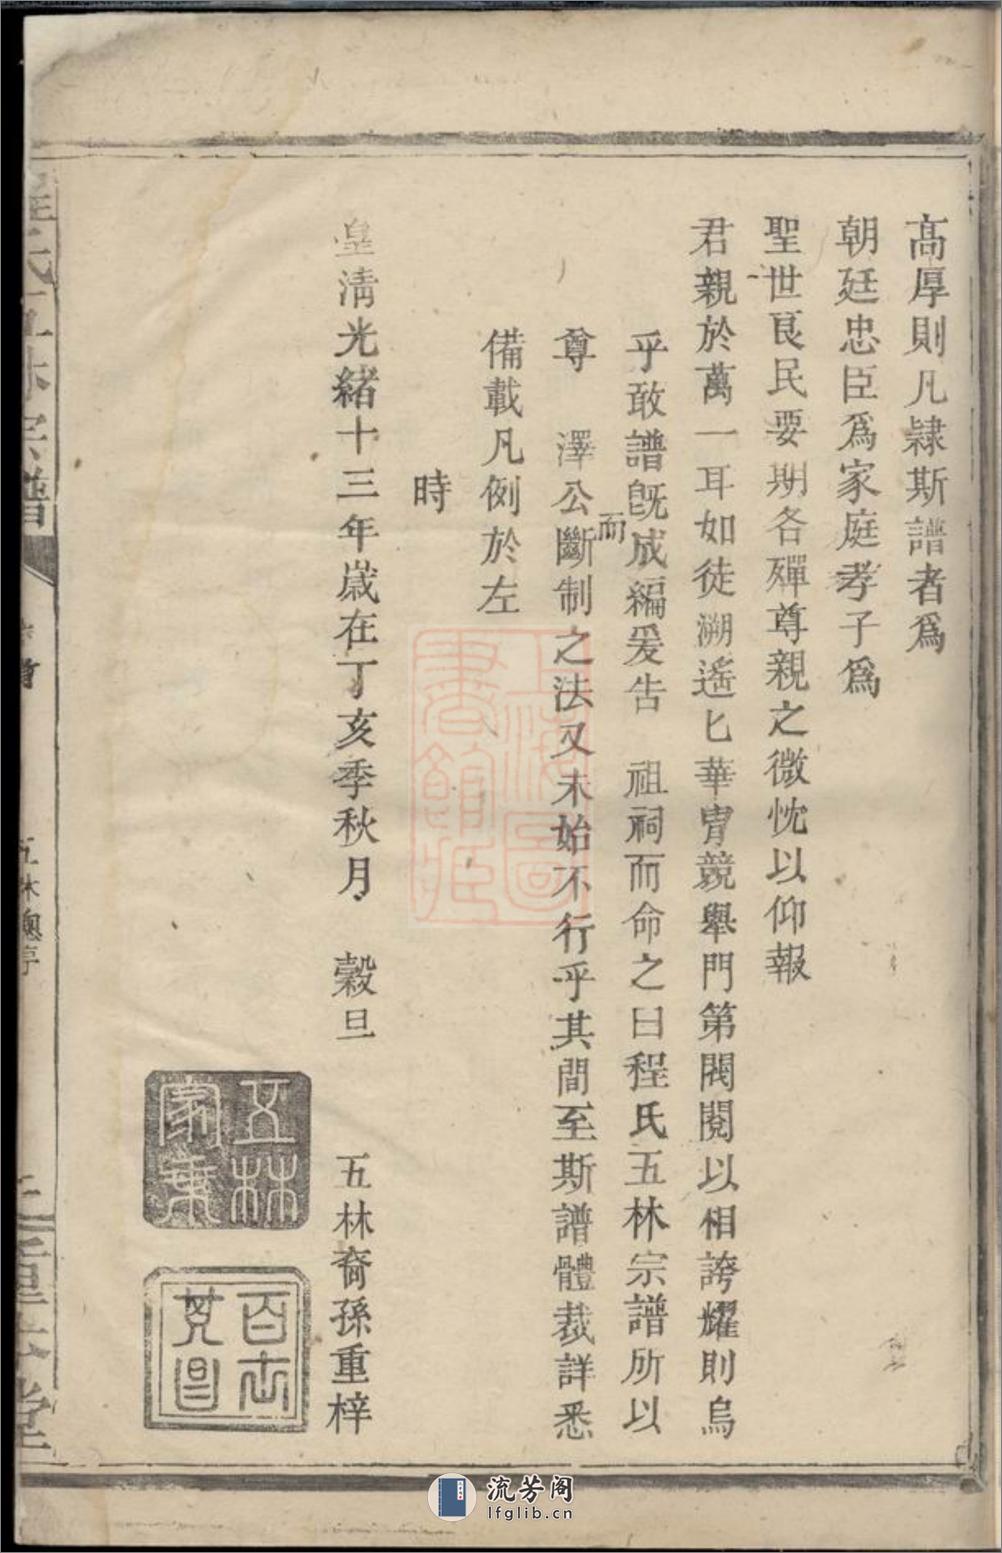 高厚則凡隸斯譜者爲
朝廷忠臣爲家庭孝子爲
聖世良民要期各殫尊親之微忱以仰報
君親於萬一耳如徒溯遙匕華胄競舉門第閥閱以相誇耀則烏
乎敢譜旣成編爰告　祖祠而命之曰程氏五林宗譜所以
尊　澤公斷制之法又未始不行乎其間至斯譜體裁詳悉
而
備載凡例於左
時
皇淸光緒十三年歲在丁亥季秋月　穀旦　五林裔孫重梓
五林
家乘
百世
其昌
上海圖
書館藏
程氏五林宗譜
五林總序
堂
流芳阁
lfglib.cn